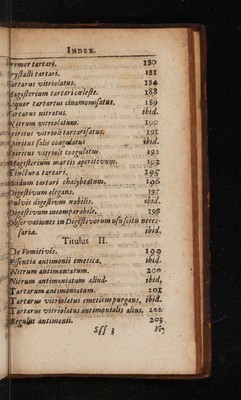 INDEX.
remor tartari. 180
rystalli tartari. 181
artarus vitriolatus. 184
Magisterium tartari cœleste. 188
iquor tartartus cinamomisatus. 189
artarus nitratus. ibid.
Nitrum vitriolatum. 190
piritus vitrioli tartarisatus. 191
piritus salis coagulatus ibid.
Spiritus vitrioli coagulatus. 192
Magisterium martis aperitivum. 193
Tinctura tartari. 195
Acidum tartari chalybeatum. 196
Digestivum elegans. 197
Pulvis digestivus nobilis. ibid.
Digestivum incomparabile. 198
Observationes in Digestivorum usu scitu neces-
sariæ. ibid.
Titulus II.
De Vomitivis. 199
Essentia antimonii emetica. ibid.
Nitrum antimoniatum. 200
Nitrum antimoniatum aliud. ibid.
Tartarum antimoniatum. 201
Tartarus vitriolatus emeticus purgans, ibid.
Tartarus vitriolatus antimonialis alius, 202
Regulus antimonii. 203
Sss 3